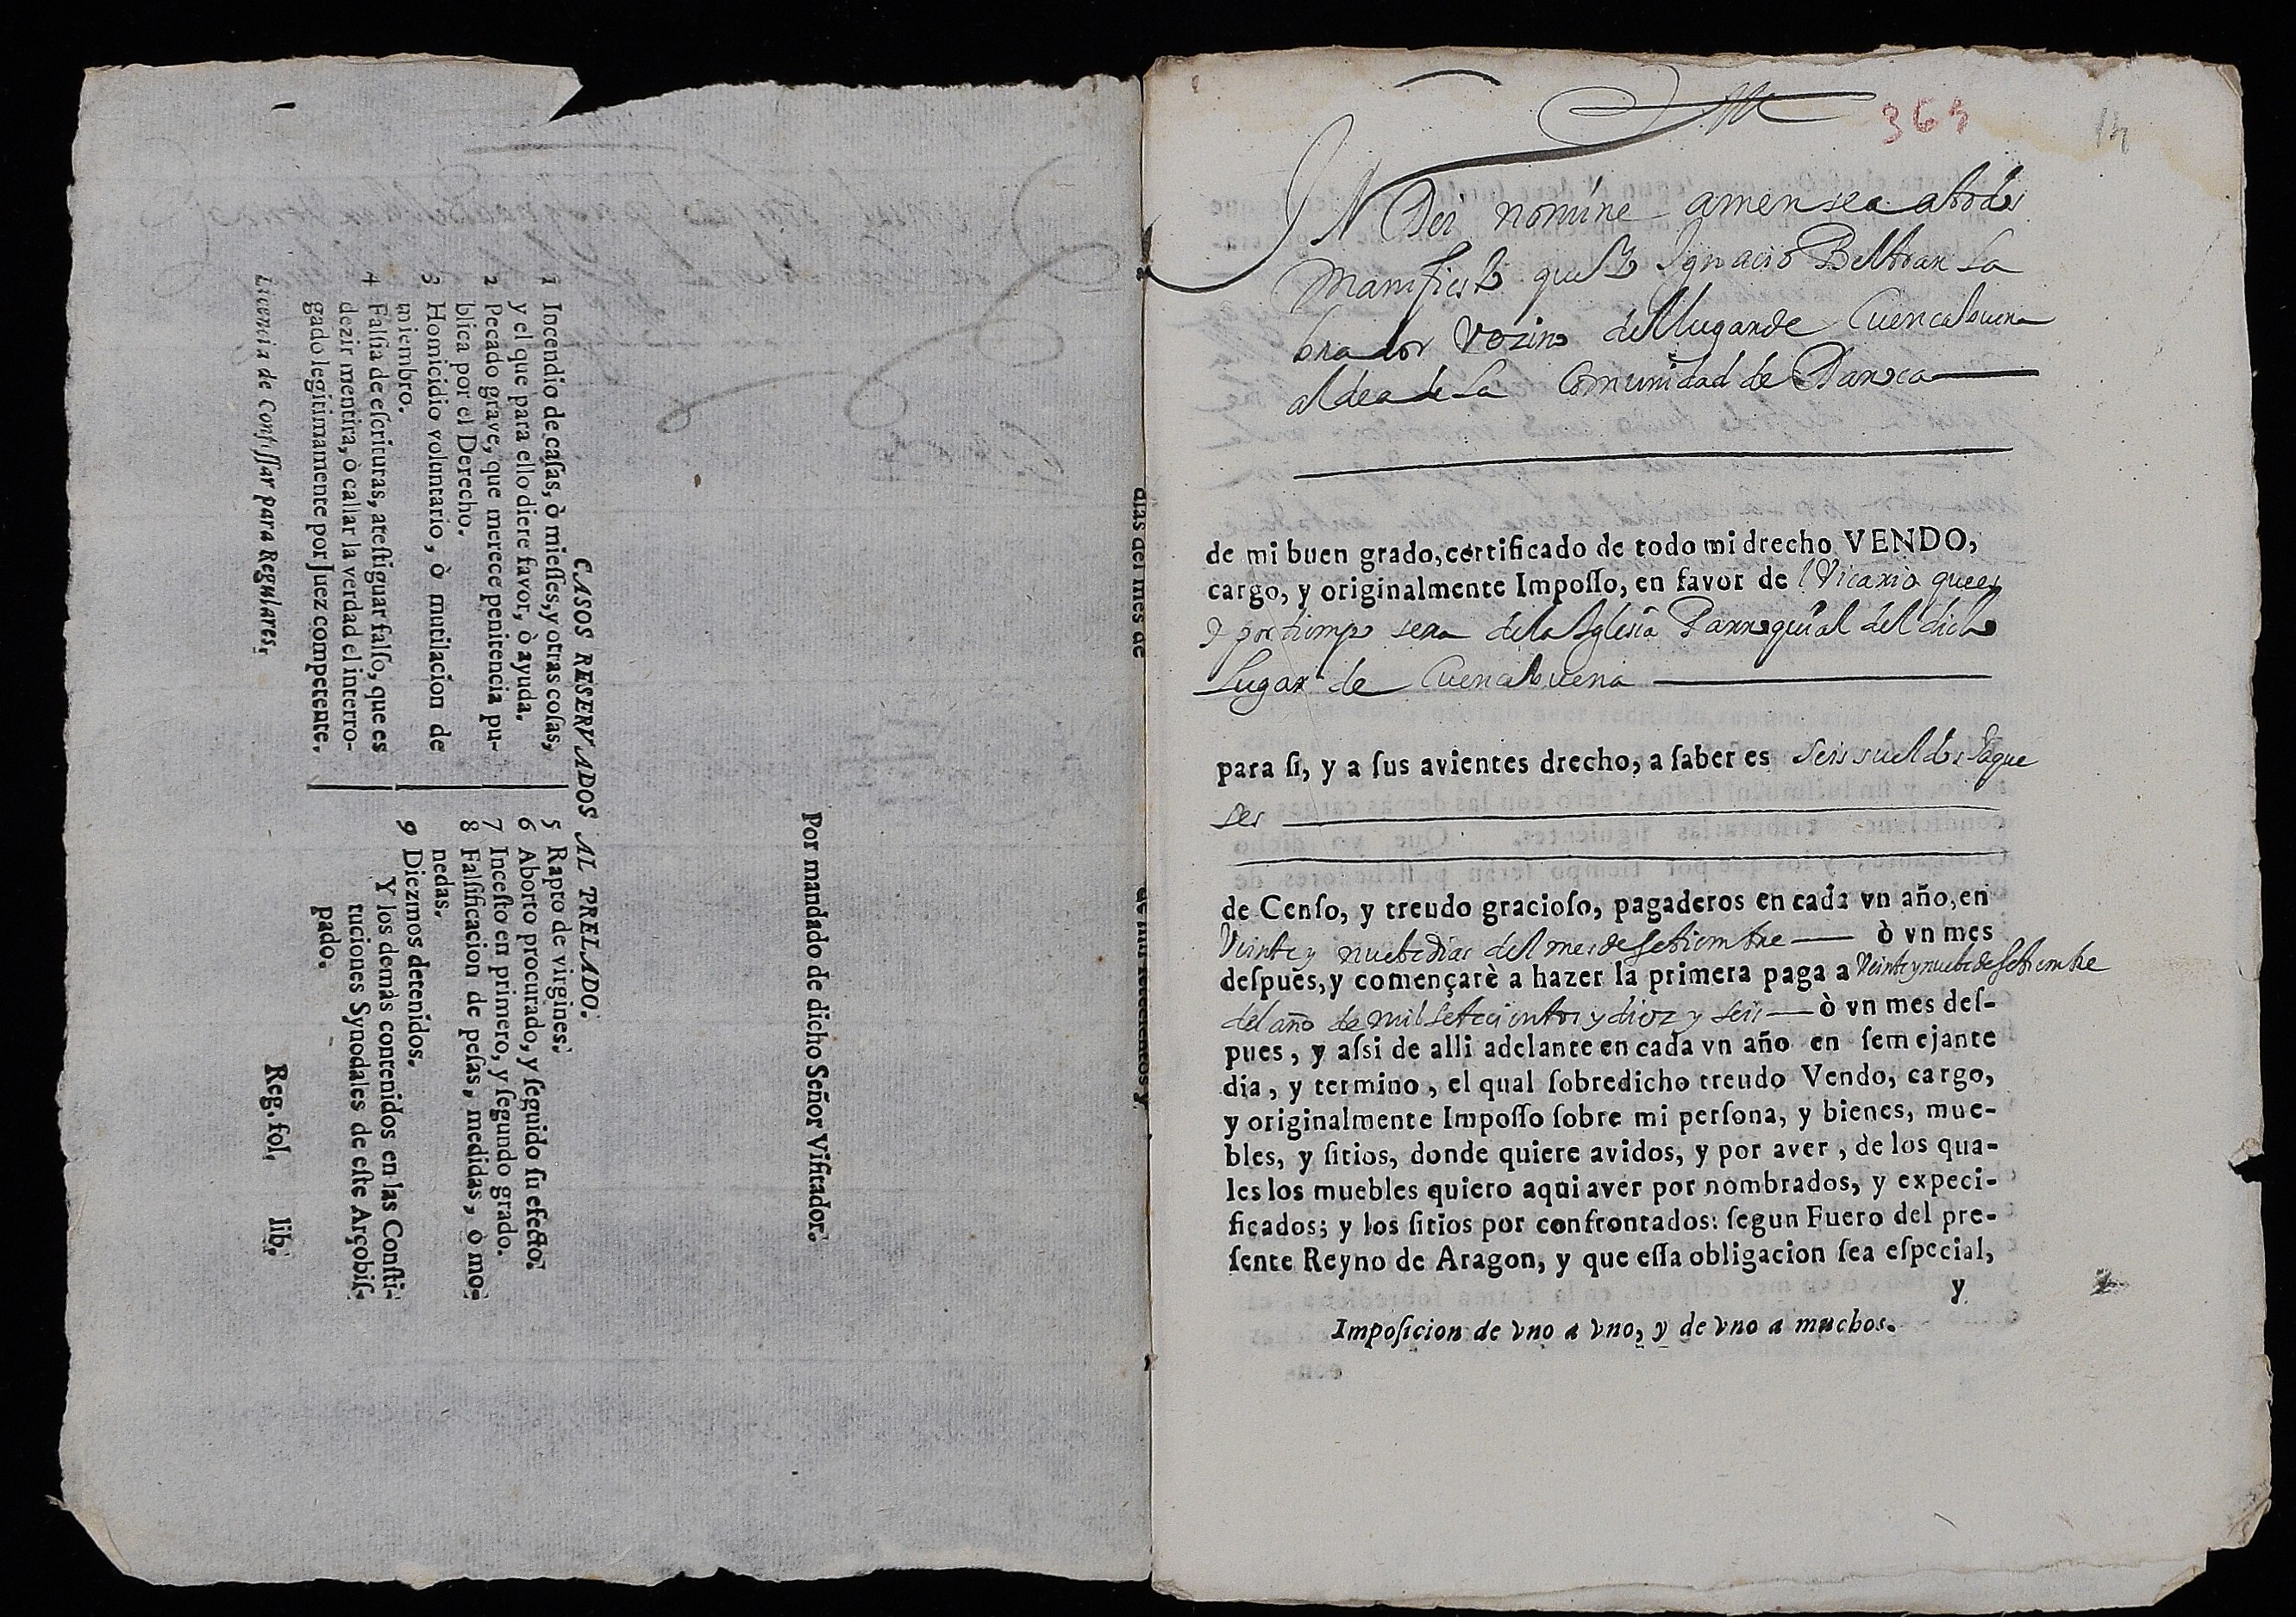 CASOS RESERVADOS AL PRELADO.
1 Incendio de caſas, ò mieſſes, y otras coſas,
y el que para ello diere favor, ò ayuda.
2 Pecado grave, que merece penitencia pu-
blica por el Derecho.
3 Homicidio voluntario, ò mutilacion de
miembro.
4 Falſia de eſcrituras, ateſtiguar falſo, que es
dezir mentira, ò callar la verdad el interro-
gado legitimamente por Juez competente.
5 Rapto de virgines.
6 Aborto procurado, y ſeguido ſu efecto.
7 Inceſto en primero, y ſegundo grado.
8 Falſificacion de peſas, medidas, ò mo-
nedas.
9 Diezmos detenidos.
Y los demàs contenidos en las Conſti-
tuciones Synodales de eſte Arçobiſ-
pado.
Licencia de Confeſſar para Regulares.
Reg. fol. lib.
Por mandado de dicho Señor Viſitador.
dias del mes de
de mil ſetecientos y
365
14
IN Dei nomine amen sea a todos
manifiesto que Yo Ignacio Beltran La
brador Vezino del lugar de Cuencabuena
aldea de la Comunidad de Daroca
de mi buen grado, certificado de todo mi drecho VENDO,
cargo, y originalmente Impoſſo, en favor de l Vicario que es
y por tiempo sera de la Iglesia Parroquial del dicho
Lugar de Cuencabuena
para ſi, y a ſus avientes drecho, a ſaber es Seis sueldos Jaque
ses
de Cenſo, y treudo gracioſo, pagaderos en cada vn año, en
Veinte y nuebe dias del mes de Setiembre ò vn mes
deſpuès, y començarè a hazer la primera paga a Veinte y nuebe de Setiembre
del año de mil Setecientos y diez y seis ò vn mes deſ-
pues, y aſsi de alli adelante en cada vn año en ſemejante
dia, y termino, el qual ſobredicho treudo Vendo, cargo,
y originalmente Impoſſo ſobre mi perſona, y bienes, mue-
bles, y ſitios, donde quiere avidos, y por aver, de los qua-
les los muebles quiero aqui aver por nombrados, y expeci-
ficados; y los ſitios por confrontados: ſegun Fuero del pre-
ſente Reyno de Aragon, y que eſſa obligacion ſea eſpecial,
y
Impoſicion de vno a vno, y de vno a muchos.